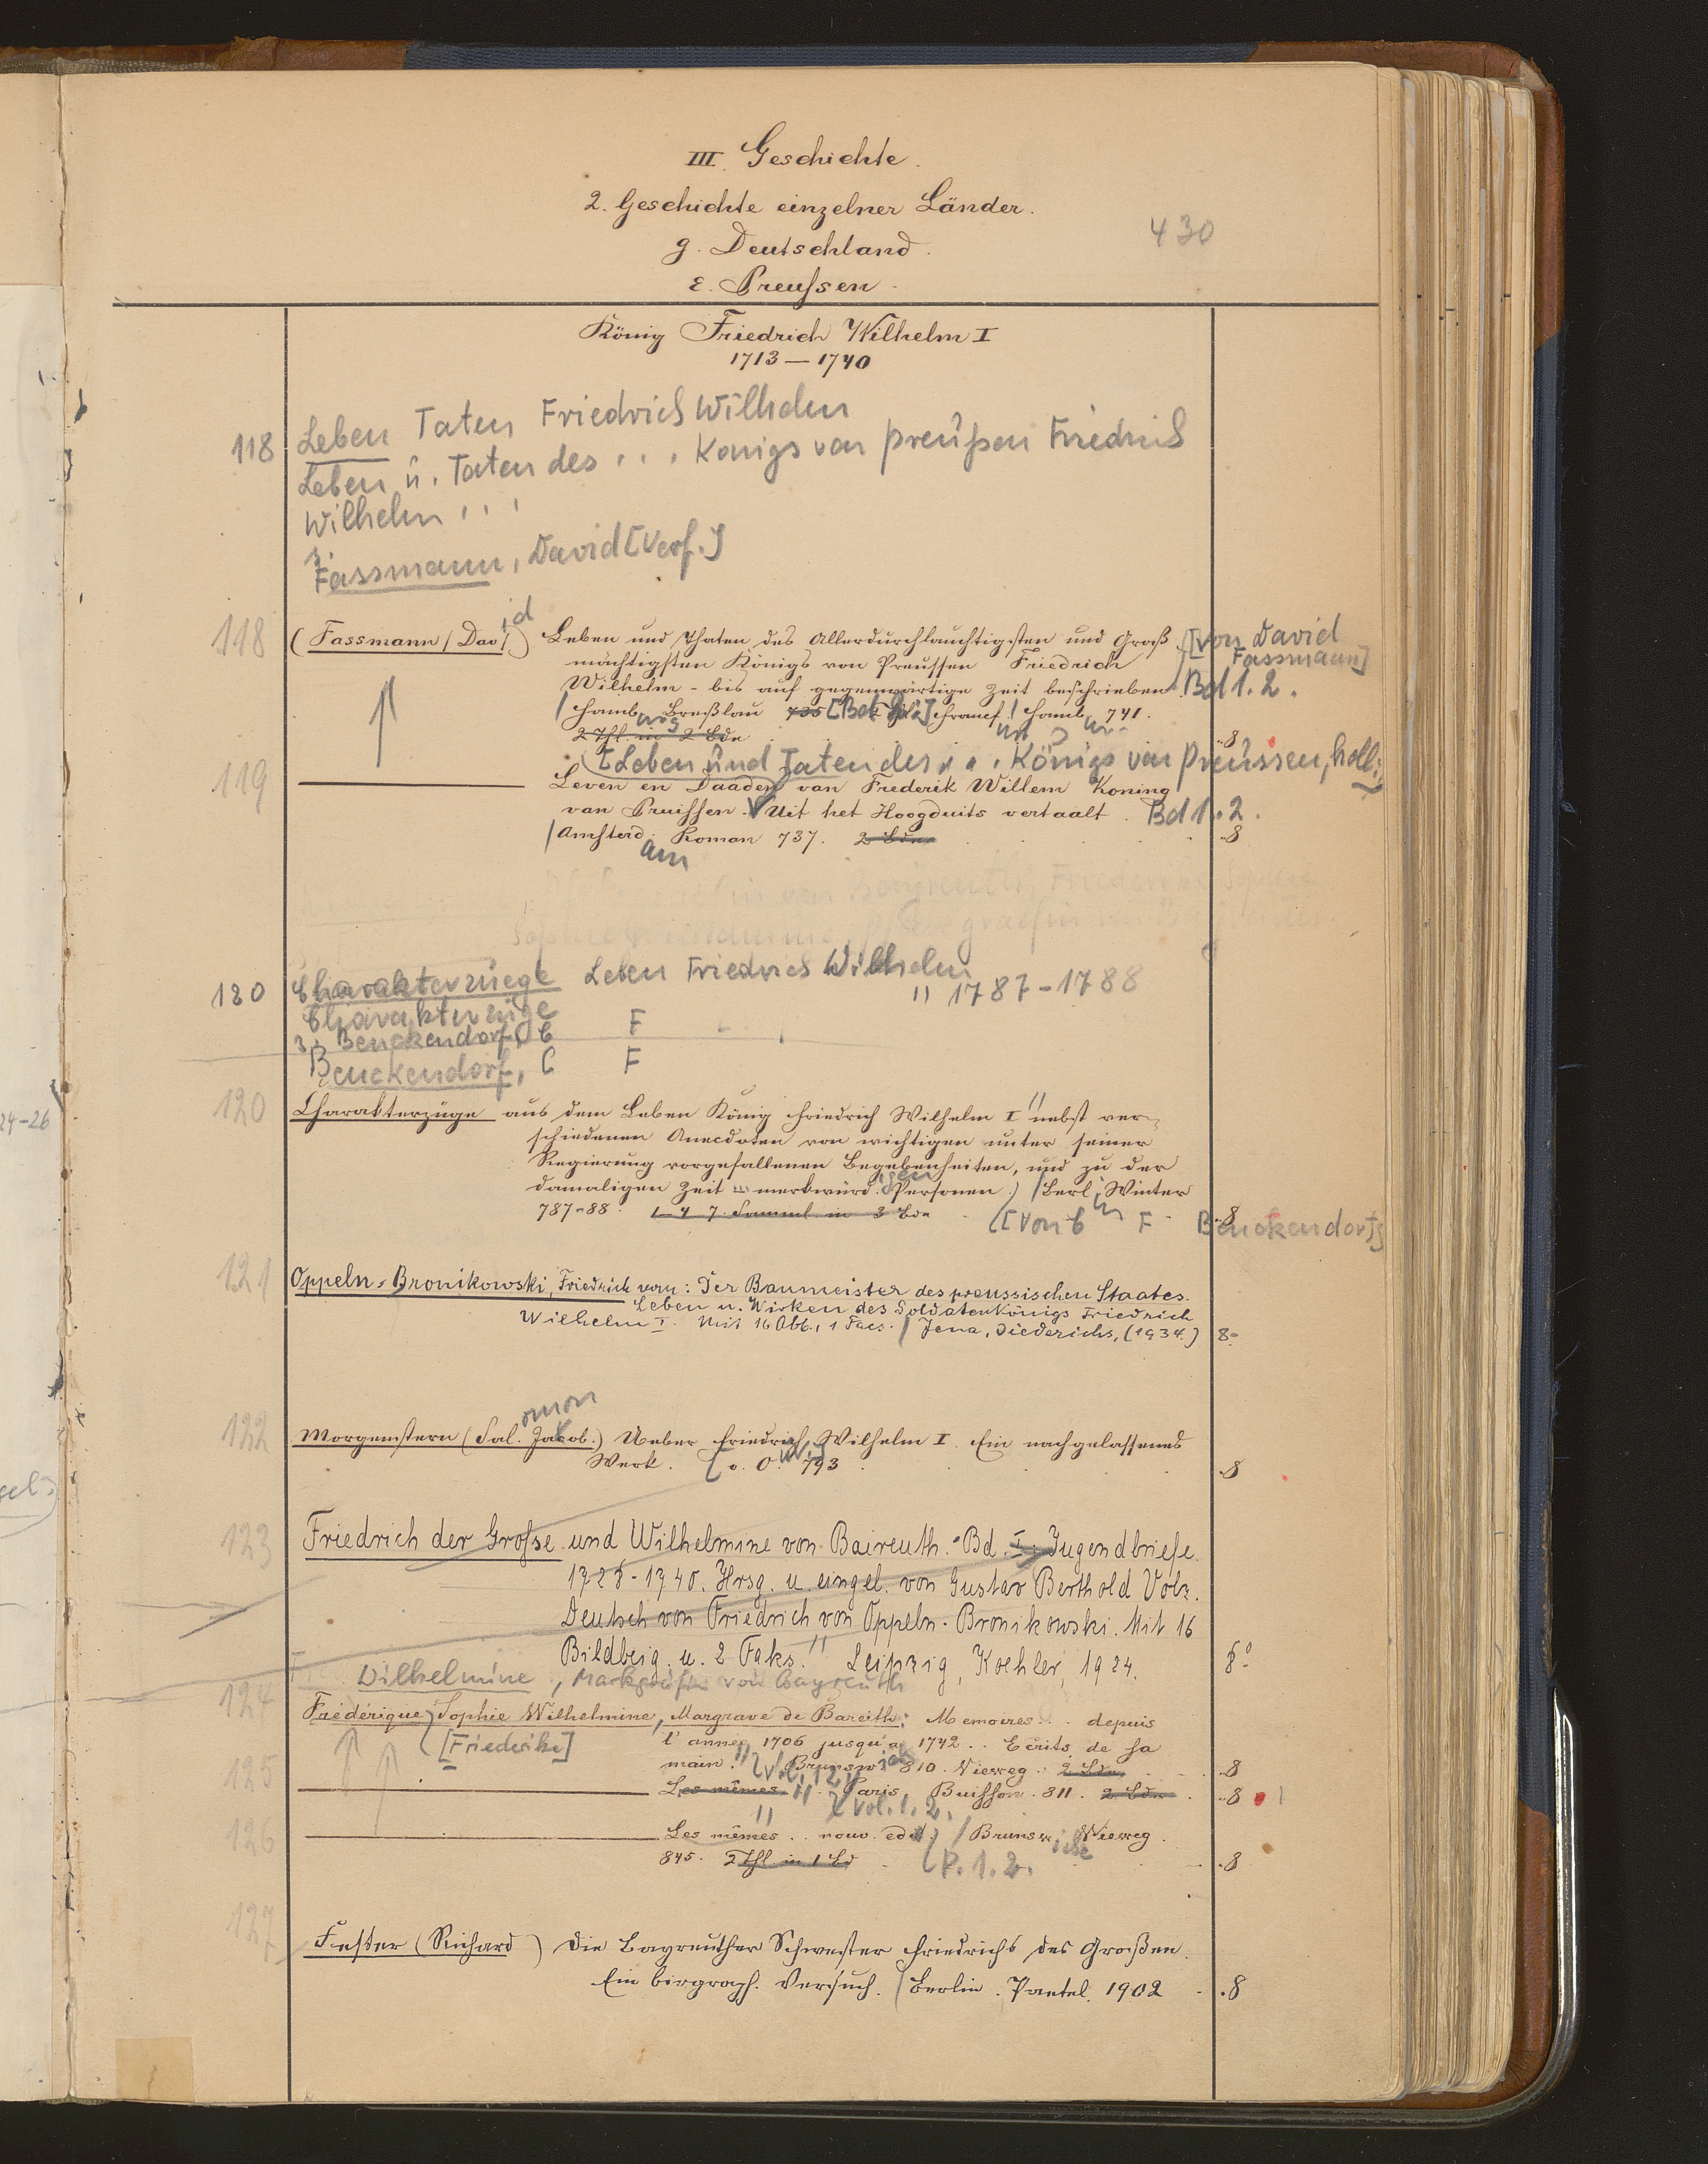 III. Geschichte.
2. Geschichte einzelner Länder.
430
g. Deutschland.
ε. Preußen.
König Friedrich Wilhelm I
1713—1740
118 Leben Taten Friedrich Wilhelm
Leben u. Taten des . . . Konigs von preußen Friedrich
Wilhelm . . .
Fassmann, David [Verf.]
118 (Fassmann (David) Leben und Thaten des Allerdurchlauchtigsten und Groß [von David Fassmann]
mächtigsten Königs von Preussen Friedrich
Wilhelm - bis auf gegenwärtige Zeit beschrieben. Bd 1.2.
Hamb. Breßlau 735 Francf. Hamb. 741.
2 Thl. in 2 Bde 8
119 [Leben und Taten des . . . Königs von Preussen, holl.]
Leven en Daaden van Frederik Willem Koning
van Pruissen. Uit het Hoogduits vertaalt. Bd 1.2.
Amsterdam Roman 737. 2 Bde 8
120 Charakterzuege Leben Friedrich Wilhelm
Charakterzüge " 1787-1788
Benckendorf, C F
Benckendorf, C F
120 Charakterzüge aus dem Leben König Friedrich Wilhelm I nebst ver-
schiedenen Anecdoten von wichtigen unter seiner
Regierung vorgefallenen Begebenheiten, und zu der
damaligen Zeit merkwürdigen Personen. Berlin Winter
787-88. 1-4 7. Samml. in 3 Bde [von C F Benckendorf] 8
121 Oppeln-Bronikowski, Friedrich von: Der Baumeister des preussischen Staates.
Leben u. Wirken des Soldatenkönigs Friedrich
Wilhelm I. Mit 16 Abb., 1 Facs. / Jena, Diederichs, (1934.) 8°
122 Morgenstern (Salomon Jacob.) Ueber Friedrich Wilhelm I. Ein nachgelassenes
Werk. o. O. 793 8
123 Friedrich der Große und Wilhelmine von Baireuth. Bd. I. Jugendbriefe.
1728-1740. Hrsg. u. eingel. von Gustav Berthold Volz.
Deutsch von Friedrich von Oppeln-Bronikowski. Mit 16
Bildbeig. u. 2 Faks. Leipzig, Koehler, 1924. 8°
Wilhelmine, Markgräfin von Bayreuth
124 Fréderique Sophie Wilhelmine, Margrave de Bareith: Memoires . . depuis
[Friederike] l'année 1706 jusqu'a 1742 . . Ecrits de sa
main. Vol. 1.2 Brunsw. 810. Vieweg. 2 Bde 8
125 Les mêmes. Paris, Buisson. 811. 2 Bde. 8
Vol. 1.2.
126 Les mêmes . . nouv. edit. / Brunsw. Vieweg.
845. 2 Thl in 1 Bd P. 1.2. 8
127 Fester (Richard) Die Bayreuther Schwester Friedrichs des Großen.
Ein biograph. Versuch. Berlin. Paetel. 1902 8
24-26